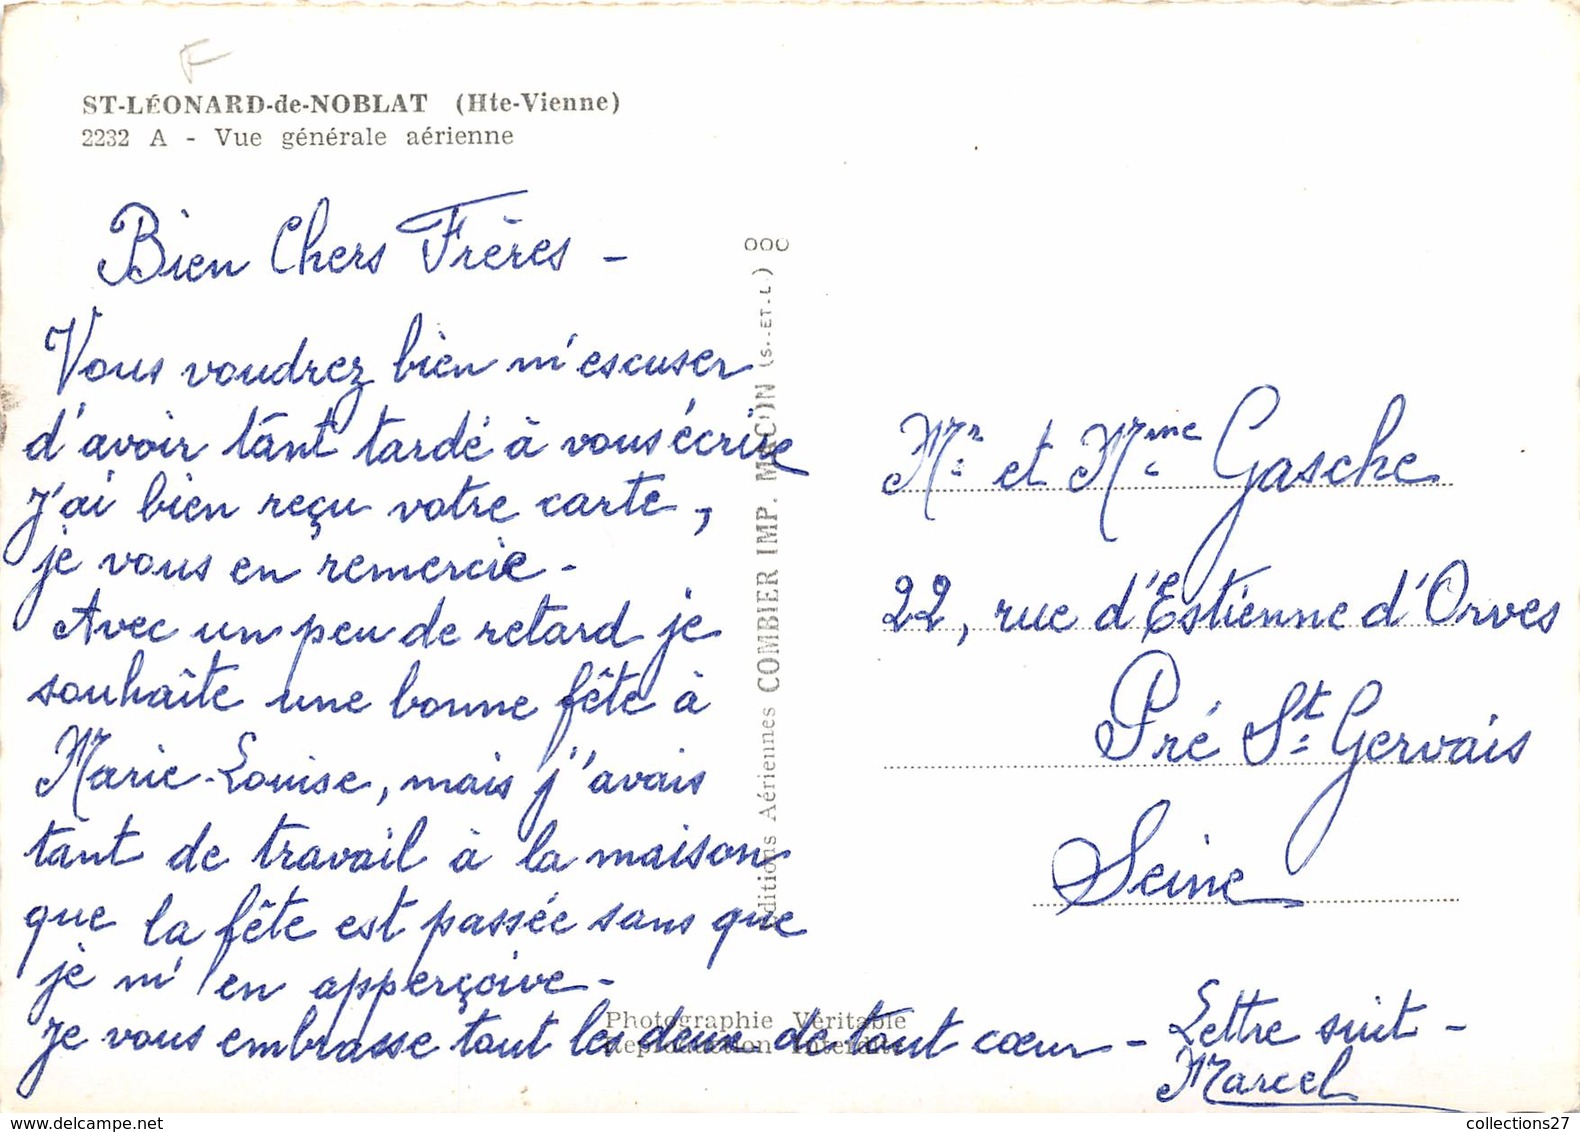 F
ST-LÉONARD-de-NOBLAT (Hte-Vienne)
2232 A - Vue générale aérienne
Bien Chers Frères -
Vous voudrez bien m'escuser
d'avoir tant tardé à vous écrire
J'ai bien reçu votre carte,
je vous en remercie -
Avec un peu de retard je
souhaite une bonne fête à
Marie-Louise, mais j'avais
tant de travail à la maison
que la fête est passée sans que
je m'en apperçoive -
Je vous embrasse tout les deux de tout cœur -
Lettre suit -
Marcel
Editions Aériennes COMBIER IMP. MACON (S.-ET-L.)
Photographie Véritable
Reproduction Interdite
Mr. et Mme. Gasche
22, rue d'Estienne d'Orves
Pré St. Gervais
Seine
collections27